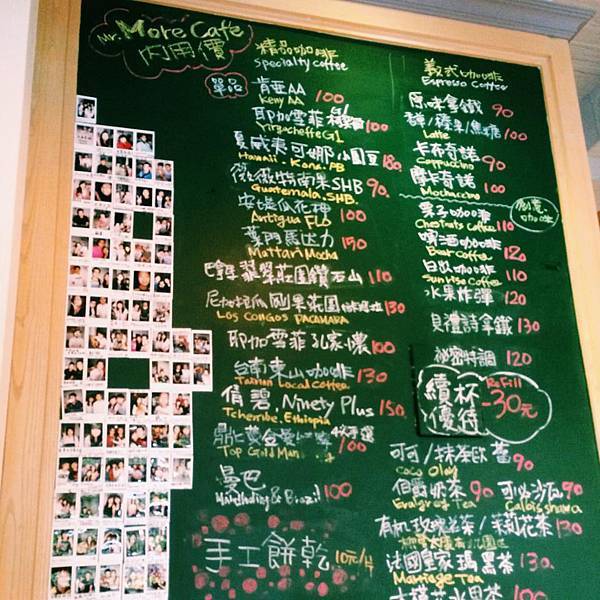 Mr. More Cafe
內用價
精品咖啡
specialty coffee
單品
肯亞AA 100
Keny AA
耶加雪菲 100
Yirgacheffe G1
夏威夷可娜小圓豆 180
Hawaii. Kona. PB
薇薇特南果SHB 90
Guatemala. SHB.
安堤瓜花神 100
Antigua FLA
葉門馬達力 150
Mattari Mocha
翡翠莊園鑽石山 110
果莊園 130
LOS CONGOS PACAMARA
耶加雪菲孔家懷 100
台南東山咖啡 130
Tainan Local coffee
倩碧 Ninety Plus 150
Tchembe. Ethiopia
黃金曼 100
Top Gold Man
曼巴 100
Mandheling & Brazil
手工餅乾 10元/片
義式咖啡
Espresso Coffee
原味拿鐵 90
榛果/焦糖 100
Latte
卡布奇諾 90
Cappuccino
摩卡奇諾 100
Mochaccino
創意咖啡
栗子咖啡 110
Chestnuts Coffee
啤酒咖啡 120
Beer Coffee
日出咖啡 110
Sunrise Coffee
水果炸彈 120
貝禮詩拿鐵 130
祕密特調 120
續杯優待
ReFill
-30元
可可/抹茶歐蕾 90
Coco Olay
伯爵奶茶 90 可必沙瓦 90
Earlgrey Tea Calbis hawa
有機玫瑰花茶/茉莉花茶 130
法國皇家瑪黑茶 130.
Marriage Tea
水果茶 100